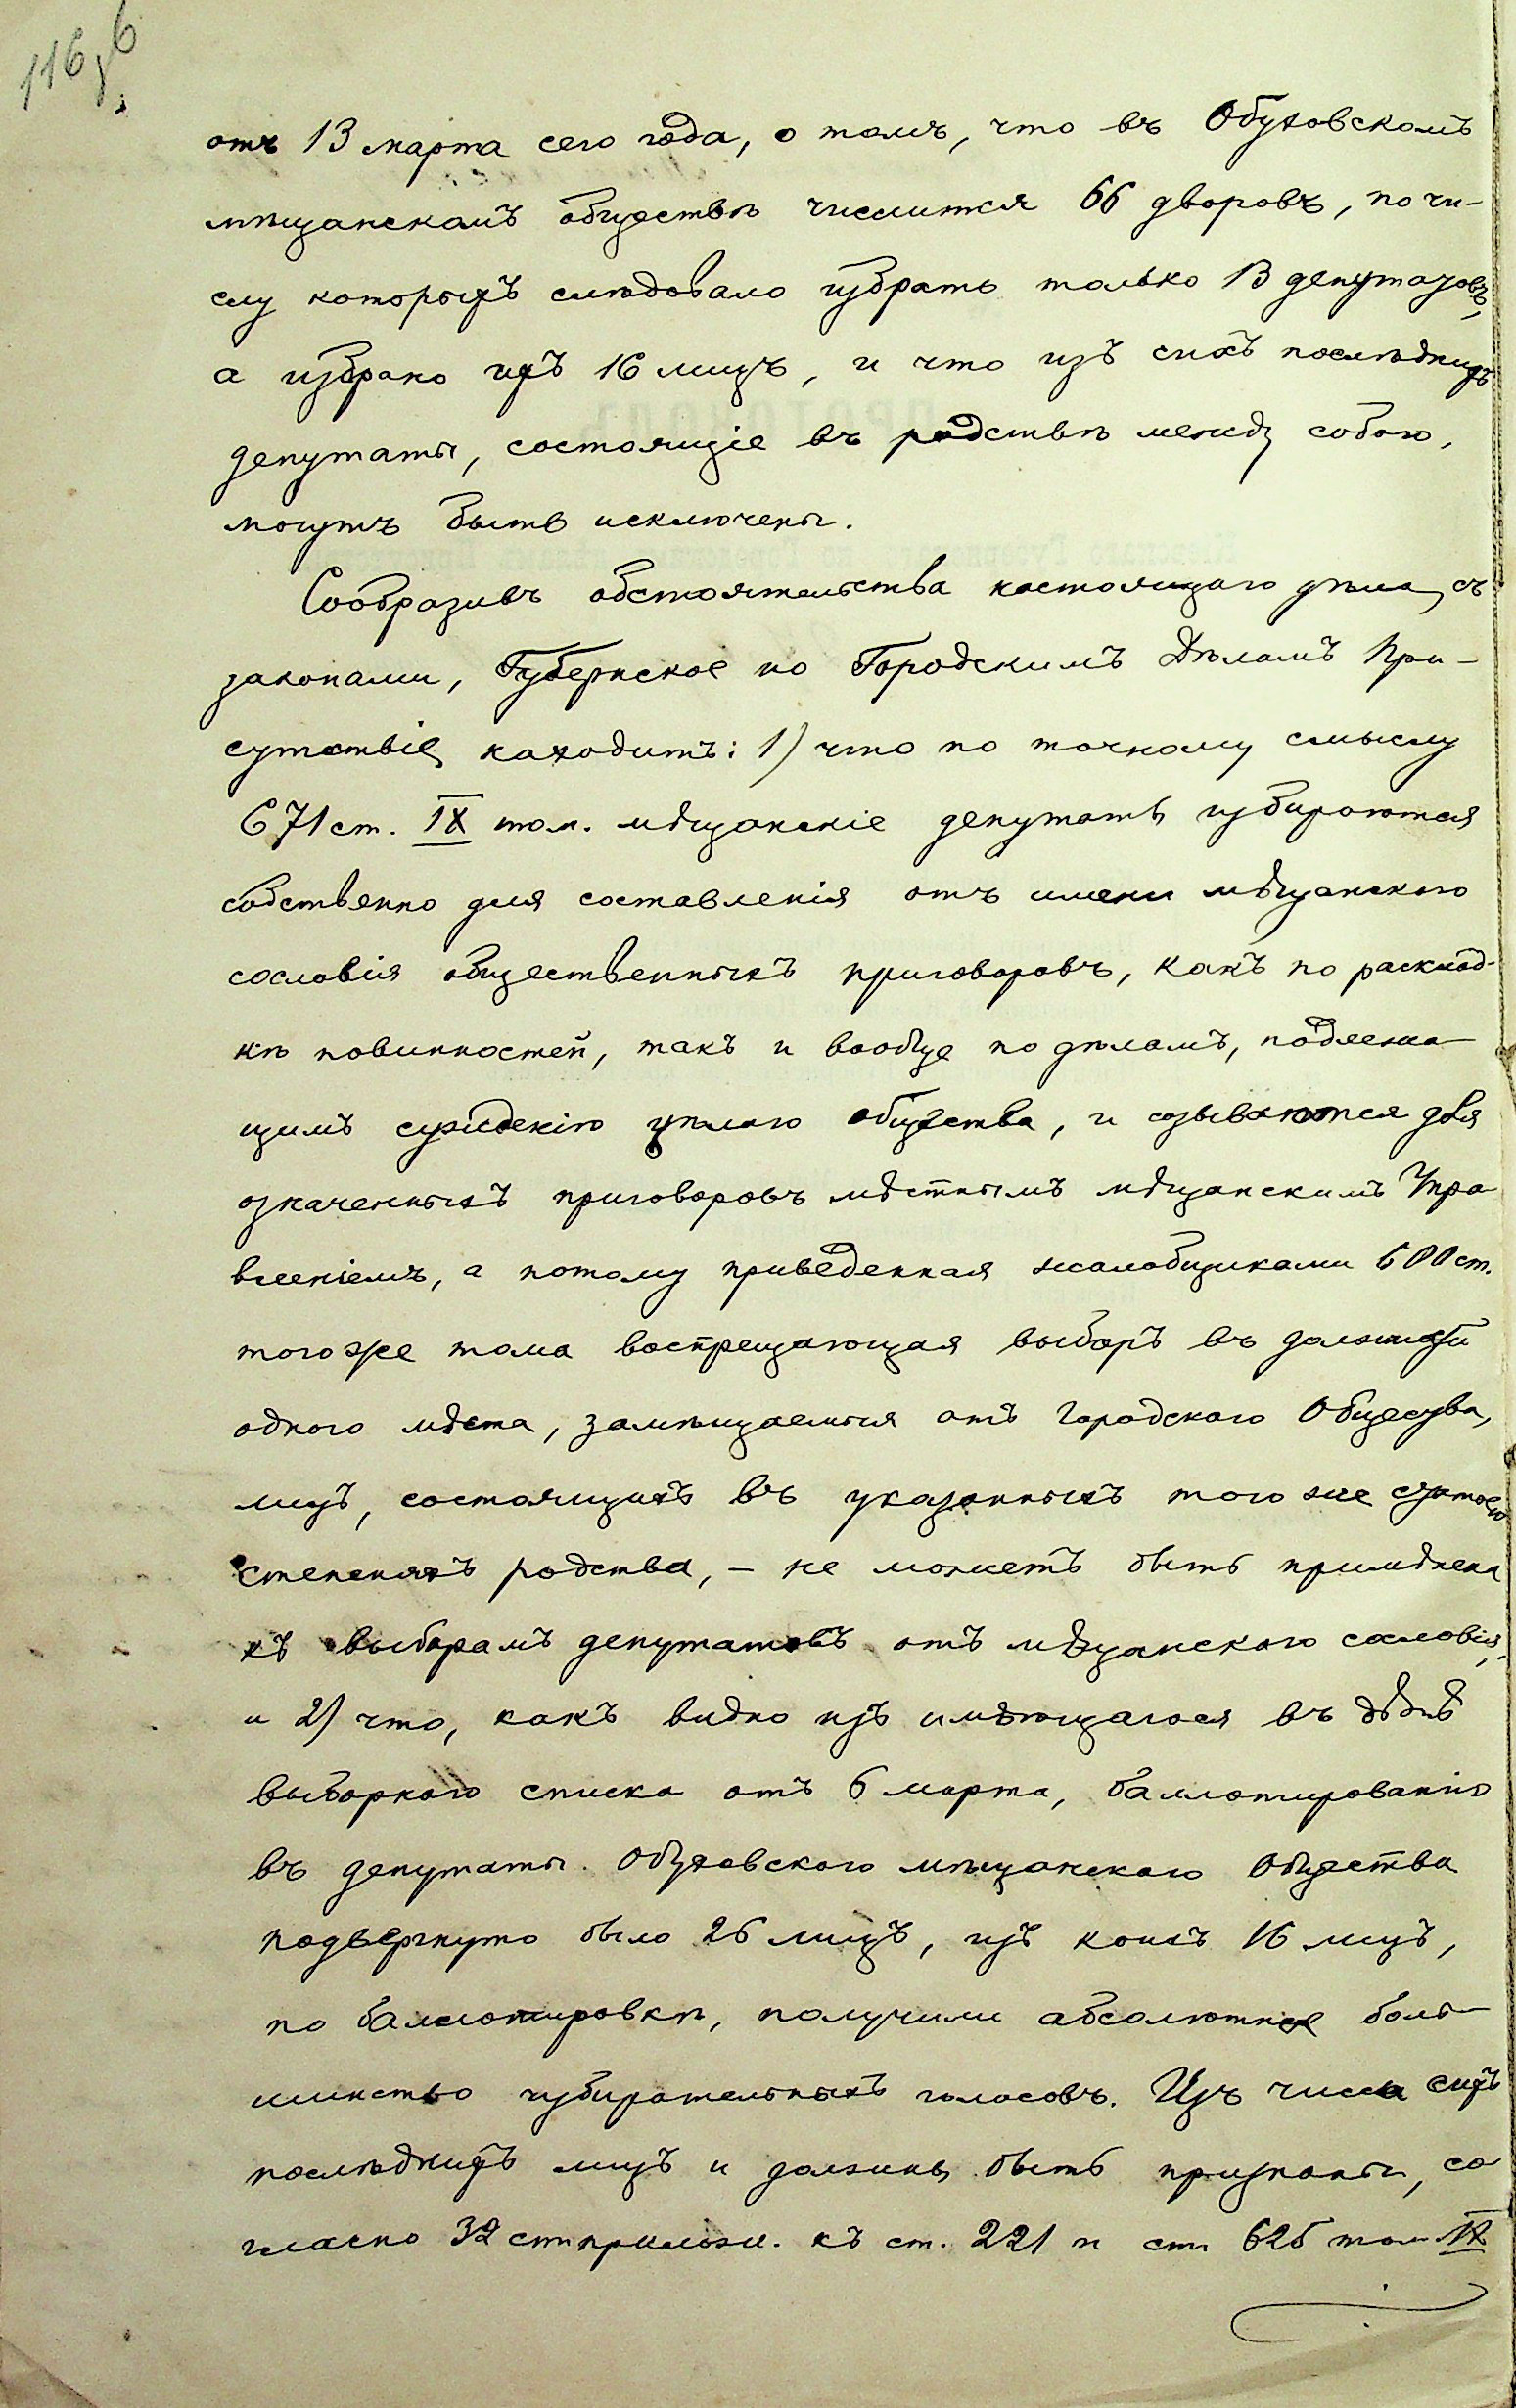 116 об
отъ 13 марта сего года, о томъ, что въ Обуховскомъ
мѣщанскомъ обществѣ числится 66 дворовъ, по чи-
слу которыхъ слѣдовало избрать только 13 депутатовъ,
а избрано ихъ 16 лицъ, и что изъ сихъ послѣднихъ
депутаты, состоящіе въ родствѣ между собою,
могутъ быть исключены.
Сообразивъ обстоятельства настоящаго дѣла, съ
законами, Губернское по Городскимъ Дѣламъ При-
сутствіе находитъ: 1) что по точному смыслу
671 ст. IX том. мѣщанскіе депутаты избираются
собственно для составленія отъ имени мѣщанского
сословія общественныхъ приговоровъ, какъ по расклад-
кѣ повинностей, такъ и вообще по дѣламъ, подлежа-
щимъ сужденію цѣлаго общества, и созываются для
означенныхъ приговоровъ мѣстнымъ мѣщанскимъ Упра
вленіемъ, а потому приведенная жалобщиками 600 ст.
того же тома воспрещающая выборъ въ должности
одного мѣста, замѣщаемыя отъ Городского Общества,
лицъ, состоящихъ въ указанныхъ тою же статьею
степеняхъ родства, – не можетъ быть примѣнена
къ выборамъ депутатовъ отъ мѣщанского сословія,
и 2) что, какъ видно изъ имѣющагося въ дѣлѣ
выборного списка отъ 6 марта, баллотированію
въ депутаты Обуховского мѣщанского Общества
подвергнуто было 26 лицъ, изъ коихъ 16 лицъ,
по баллотировкѣ, получили абсолютное боль-
шинство избирательныхъ голосовъ. Изъ числа сихъ
послѣднихъ лицъ и должны быть признаны, со
гласно 32 ст. прилож. къ ст. 221 и ст. 625 том. IX